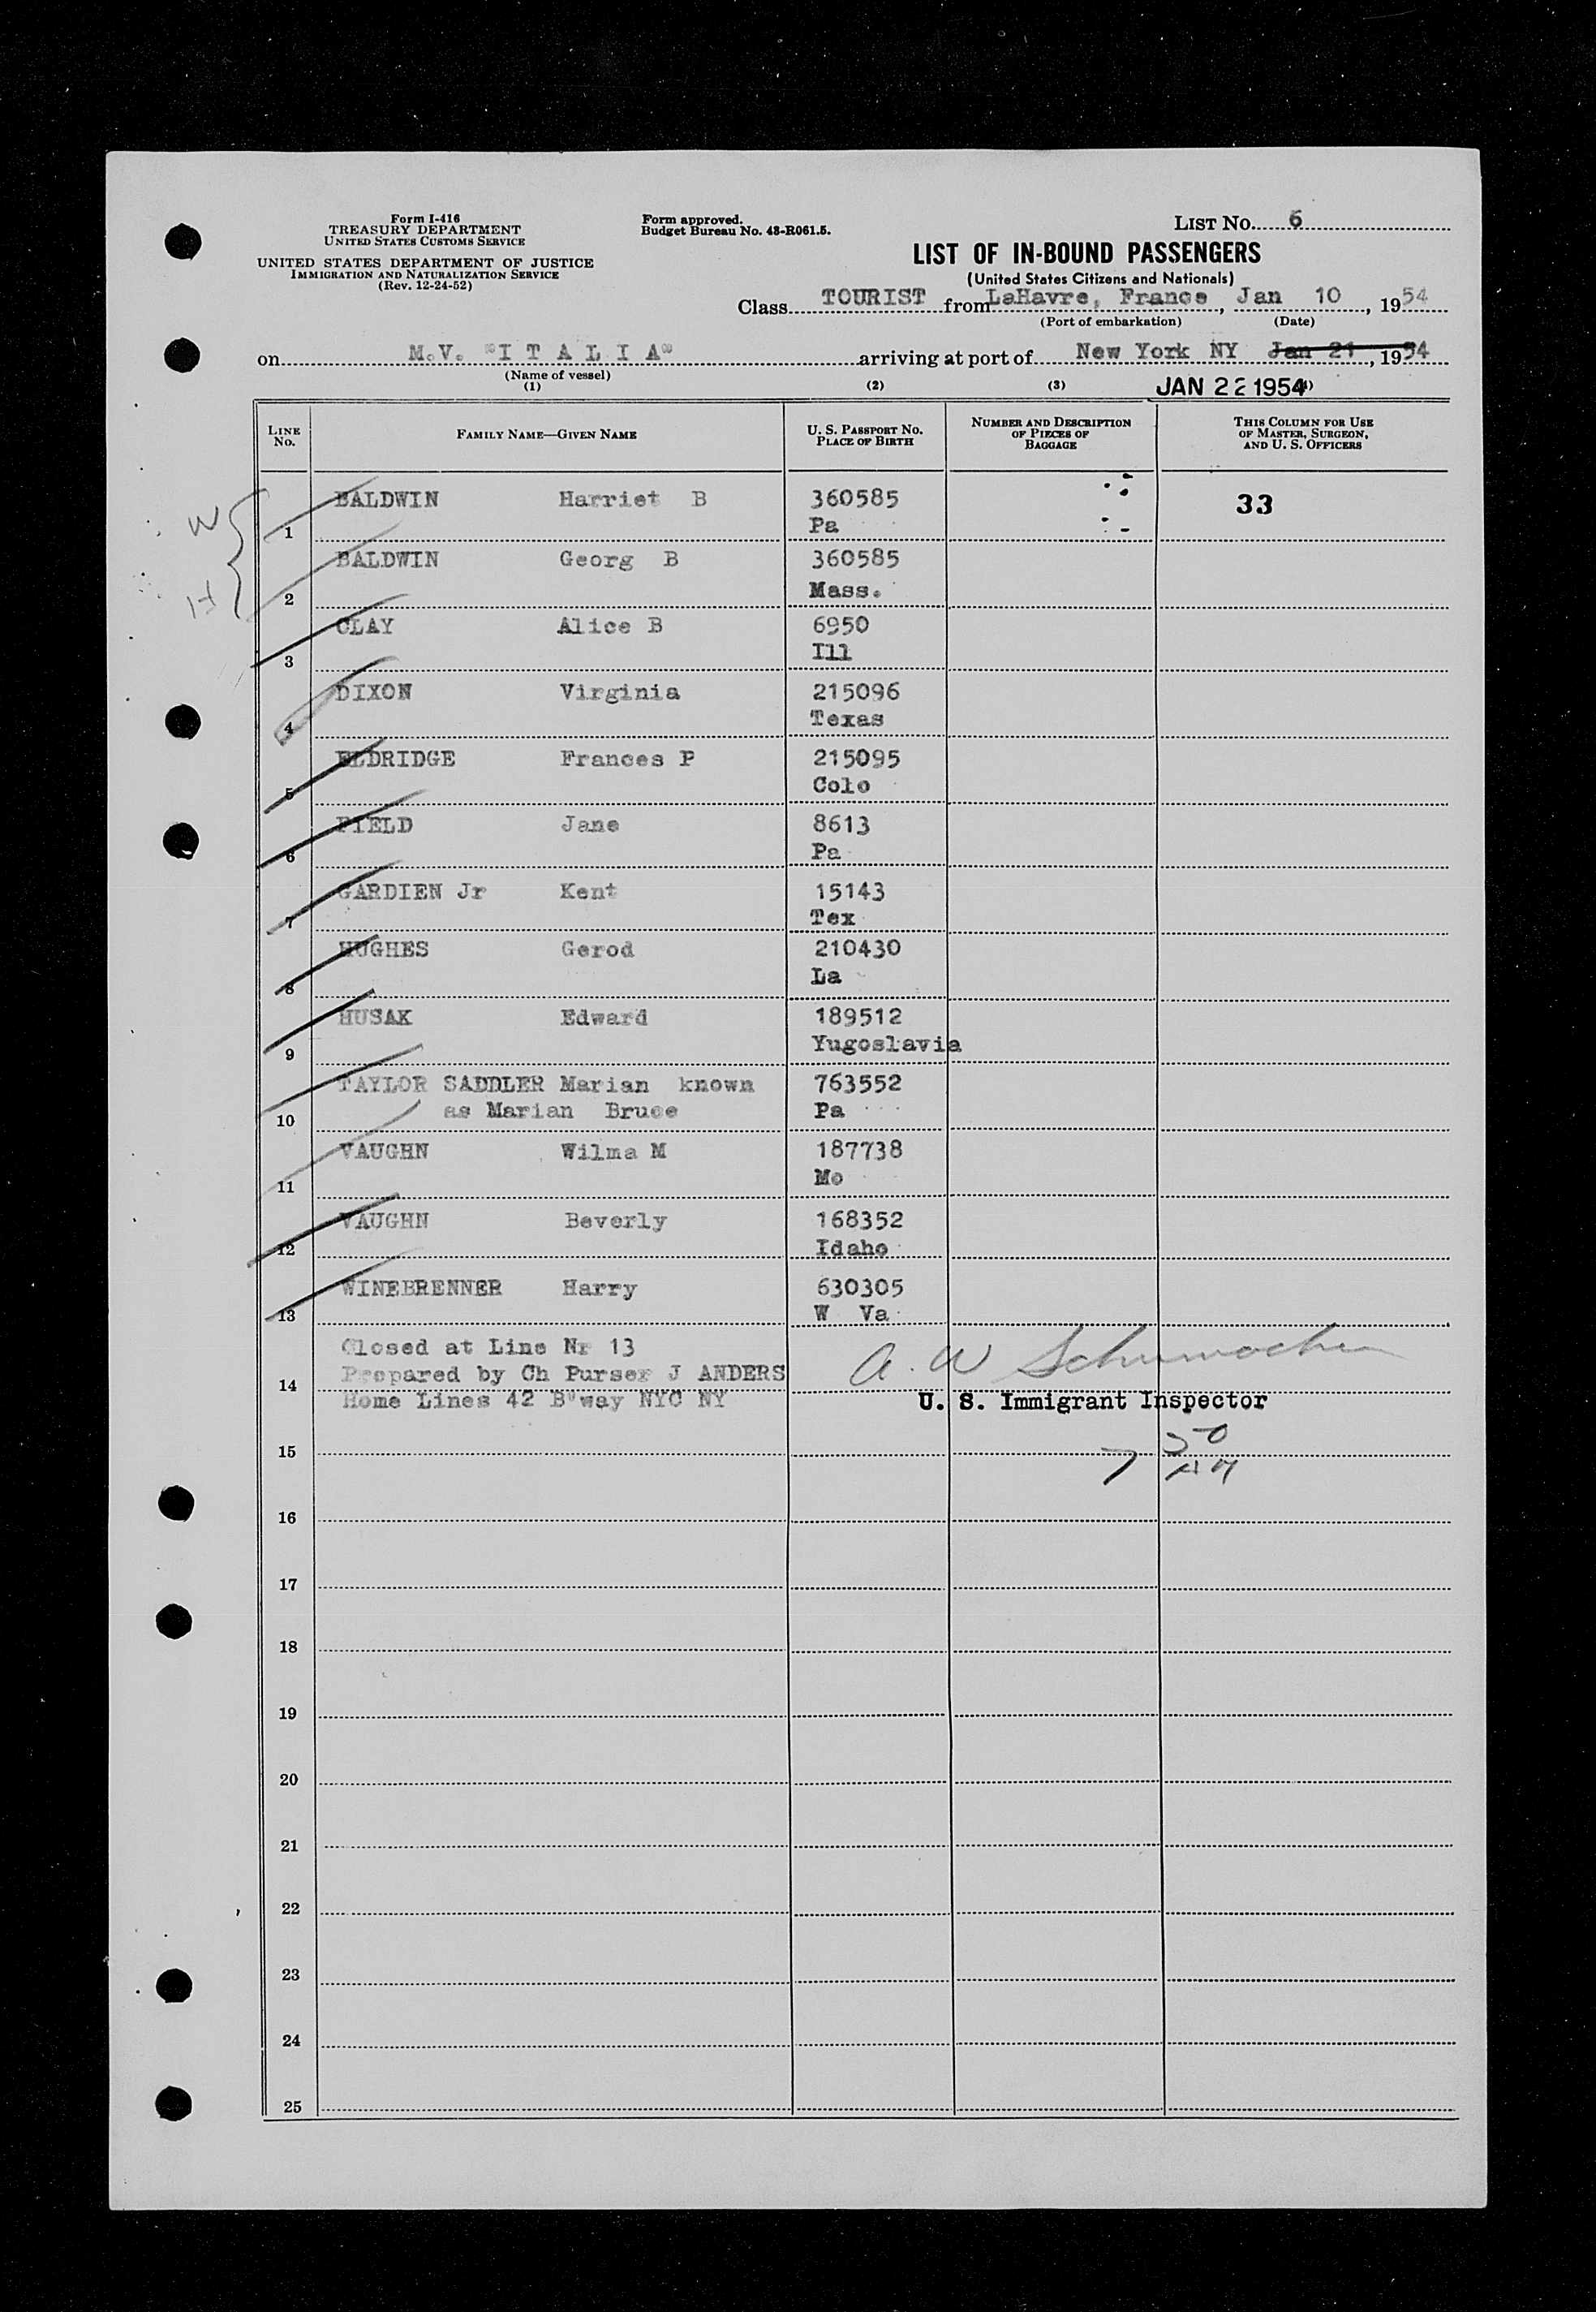 Form I-416
TREASURY DEPARTMENT
UNITED STATES CUSTOMS SERVICE
UNITED STATES DEPARTMENT OF JUSTICE
IMMIGRATION AND NATURALIZATION SERVICE
(Rev. 12-24-52)
Form approved.
Budget Bureau No. 43-R061.5.
LIST No. 6
LIST OF IN-BOUND PASSENGERS
(United States Citizens and Nationals)
Class TOURIST from LeHavre, France, Jan 10, 1954
(Port of embarkation) (Date)
on M.V. "I T A L I A" arriving at port of New York NY Jan 21, 1954
(Name of vessel)
(1) (2) (3) JAN 22 1954
LINE No. FAMILY NAME—GIVEN NAME U. S. PASSPORT NO. PLACE OF BIRTH NUMBER AND DESCRIPTION OF PIECES OF BAGGAGE THIS COLUMN FOR USE OF MASTER, SURGEON, AND U. S. OFFICERS
W
H
1 BALDWIN Harriet B 360585 33
Pa
2 BALDWIN Georg B 360585
Mass.
3 CLAY Alice B 6950
Ill
4 DIXON Virginia 215096
Texas
5 ELDRIDGE Frances P 215095
Colo
6 FIELD Jane 8613
Pa
7 GARDIEN Jr Kent 15143
Tex
8 HUGHES Gerod 210430
La
9 HUSAK Edward 189512
Yugoslavia
10 TAYLOR SADDLER Marian known 763552
as Marian Bruce Pa
11 VAUGHN Wilma M 187738
Mo
12 VAUGHN Beverly 168352
Idaho
13 WINEBRENNER Harry 630305
W Va
Closed at Line Nr 13
14 Prepared by Ch Purser J ANDERS A. W Schumacher
Home Lines 42 B"way NYC NY U. S. Immigrant Inspector
15
16
17
18
19
20
21
22
23
24
25